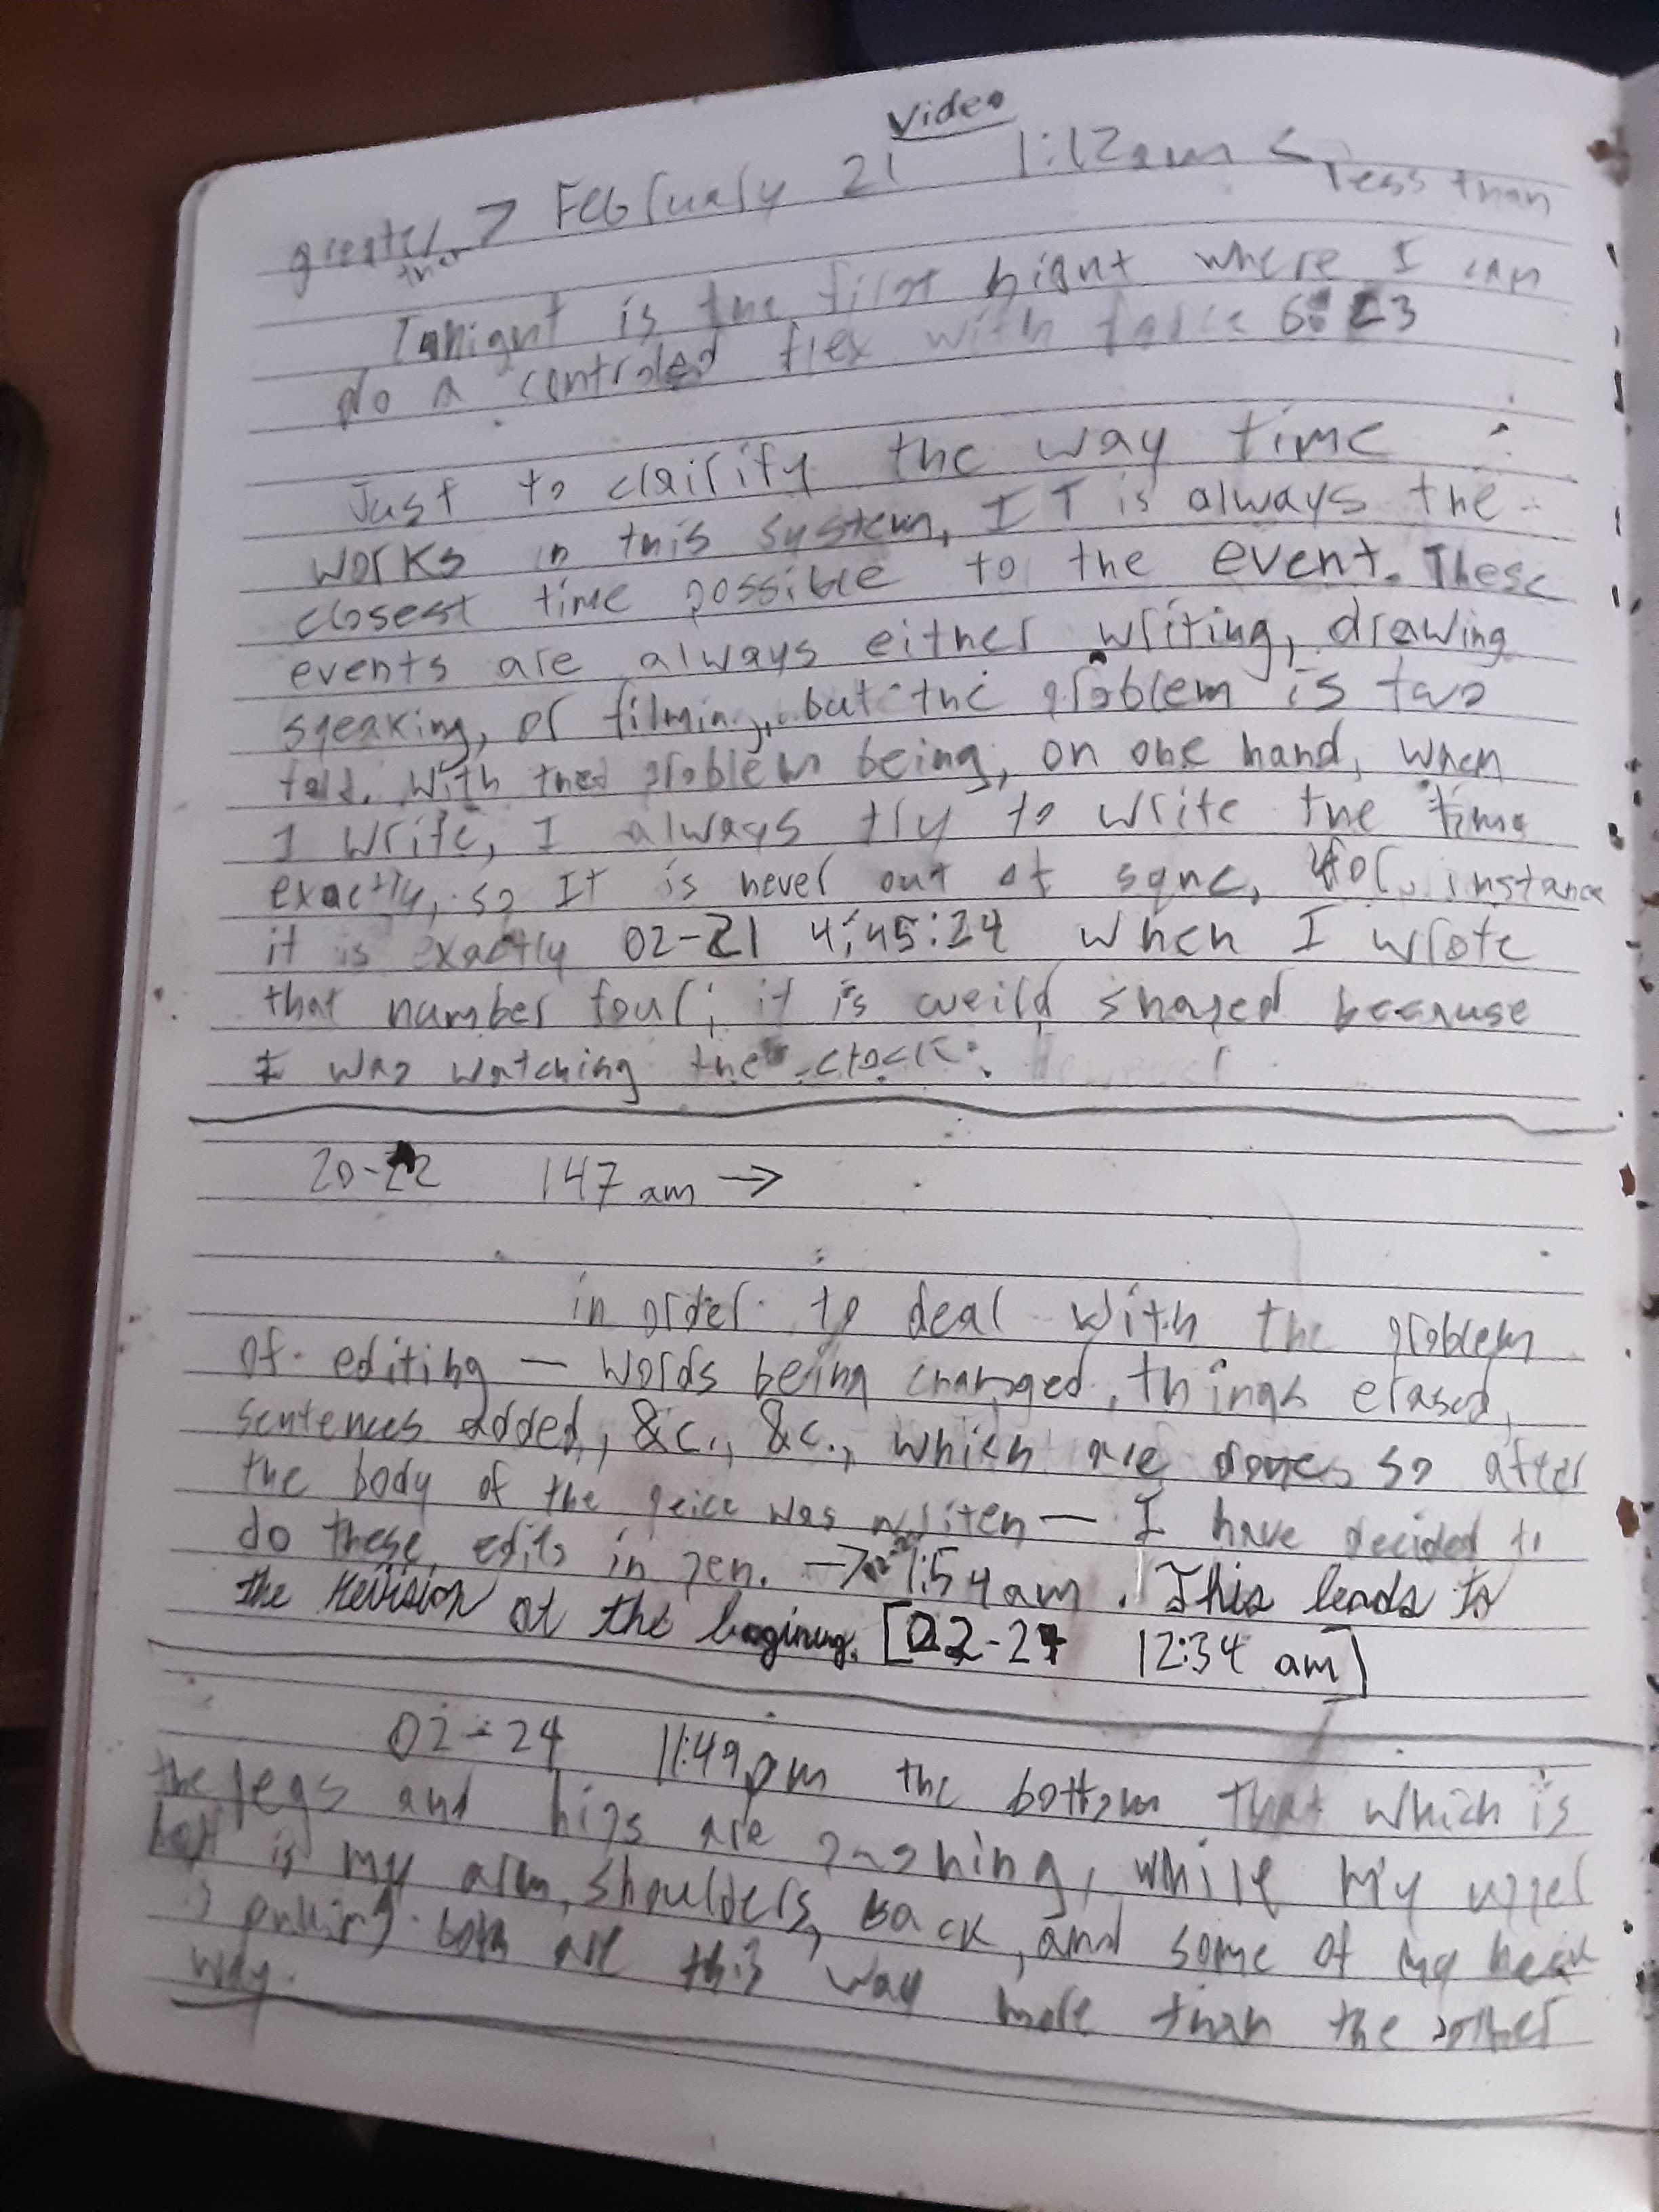 Video
greater than > February 21 1:12am < less than
Tonight is the first night where I can
do a controled flex with force 6:23
Just to clairify the way time
works in this system, IT is always the
closest time possible to the event. These
events are always either writing, drawing
speaking, or filming, but the problem is two
fold. With that problem being, on one hand, when
I write, I always try to write the time
exactly, so It is never out of sync, for instance
it is exactly 02-21 4:45:24 when I wrote
that number four; it is weird shaped because
I was watching the clock.
20-22 147 am →
in order to deal with the problem
of editing — words being changed, things erased,
sentences added, &c., &c., which are done so after
the body of the peice was writen — I have decided to
do these edits in pen. → 1:54am. This leads to
the revision at the begining. [02-27 12:34 am]
02-24 11:49pm the bottom that which is
the legs and hips are pushing, while my upper
half is my arm, shoulders, back, and some of my neck
is pulling. both are this way more than the other
way.